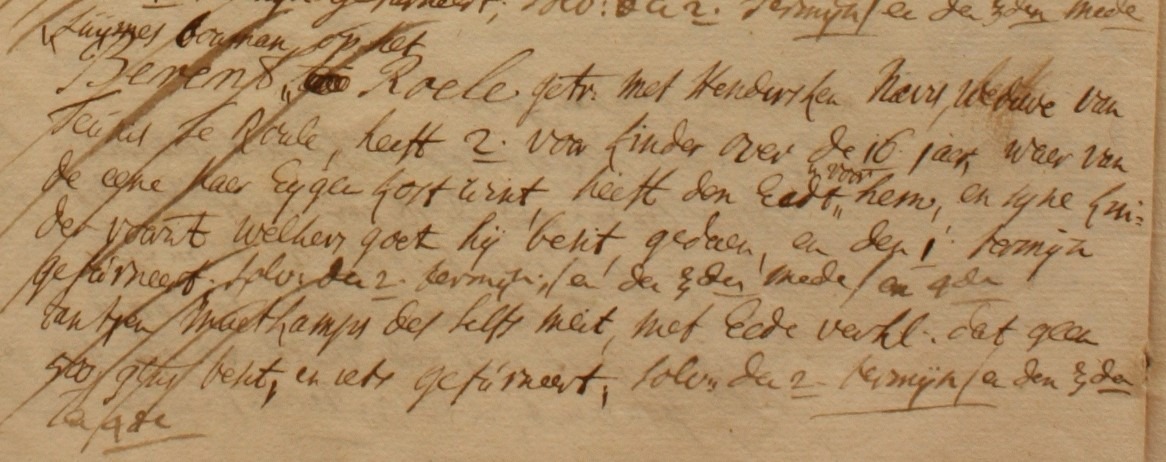 gefurneert, solv: den 2. termijn / en den 3den mede
bouman op het
Berent te Roele getr. met Hendersken weduwe van
Teunis te Roele, heeft 2. voor kinder over de 16 jaer, waer van
de eene haer Eygen kost wint, heeft den Eedt voor hem, en syne kin-
der voort welkers goet hij besit, gedaen, en den 1. termijn
gefurneert. solv: den 2. termijn. / en den 3den mede / en 4de
Jantjen des selfs meit, met Eede verkl. dat geen
500 gl. besit, en iets gefurneert, solv. den 2. termijn / en den 3den
en 4de